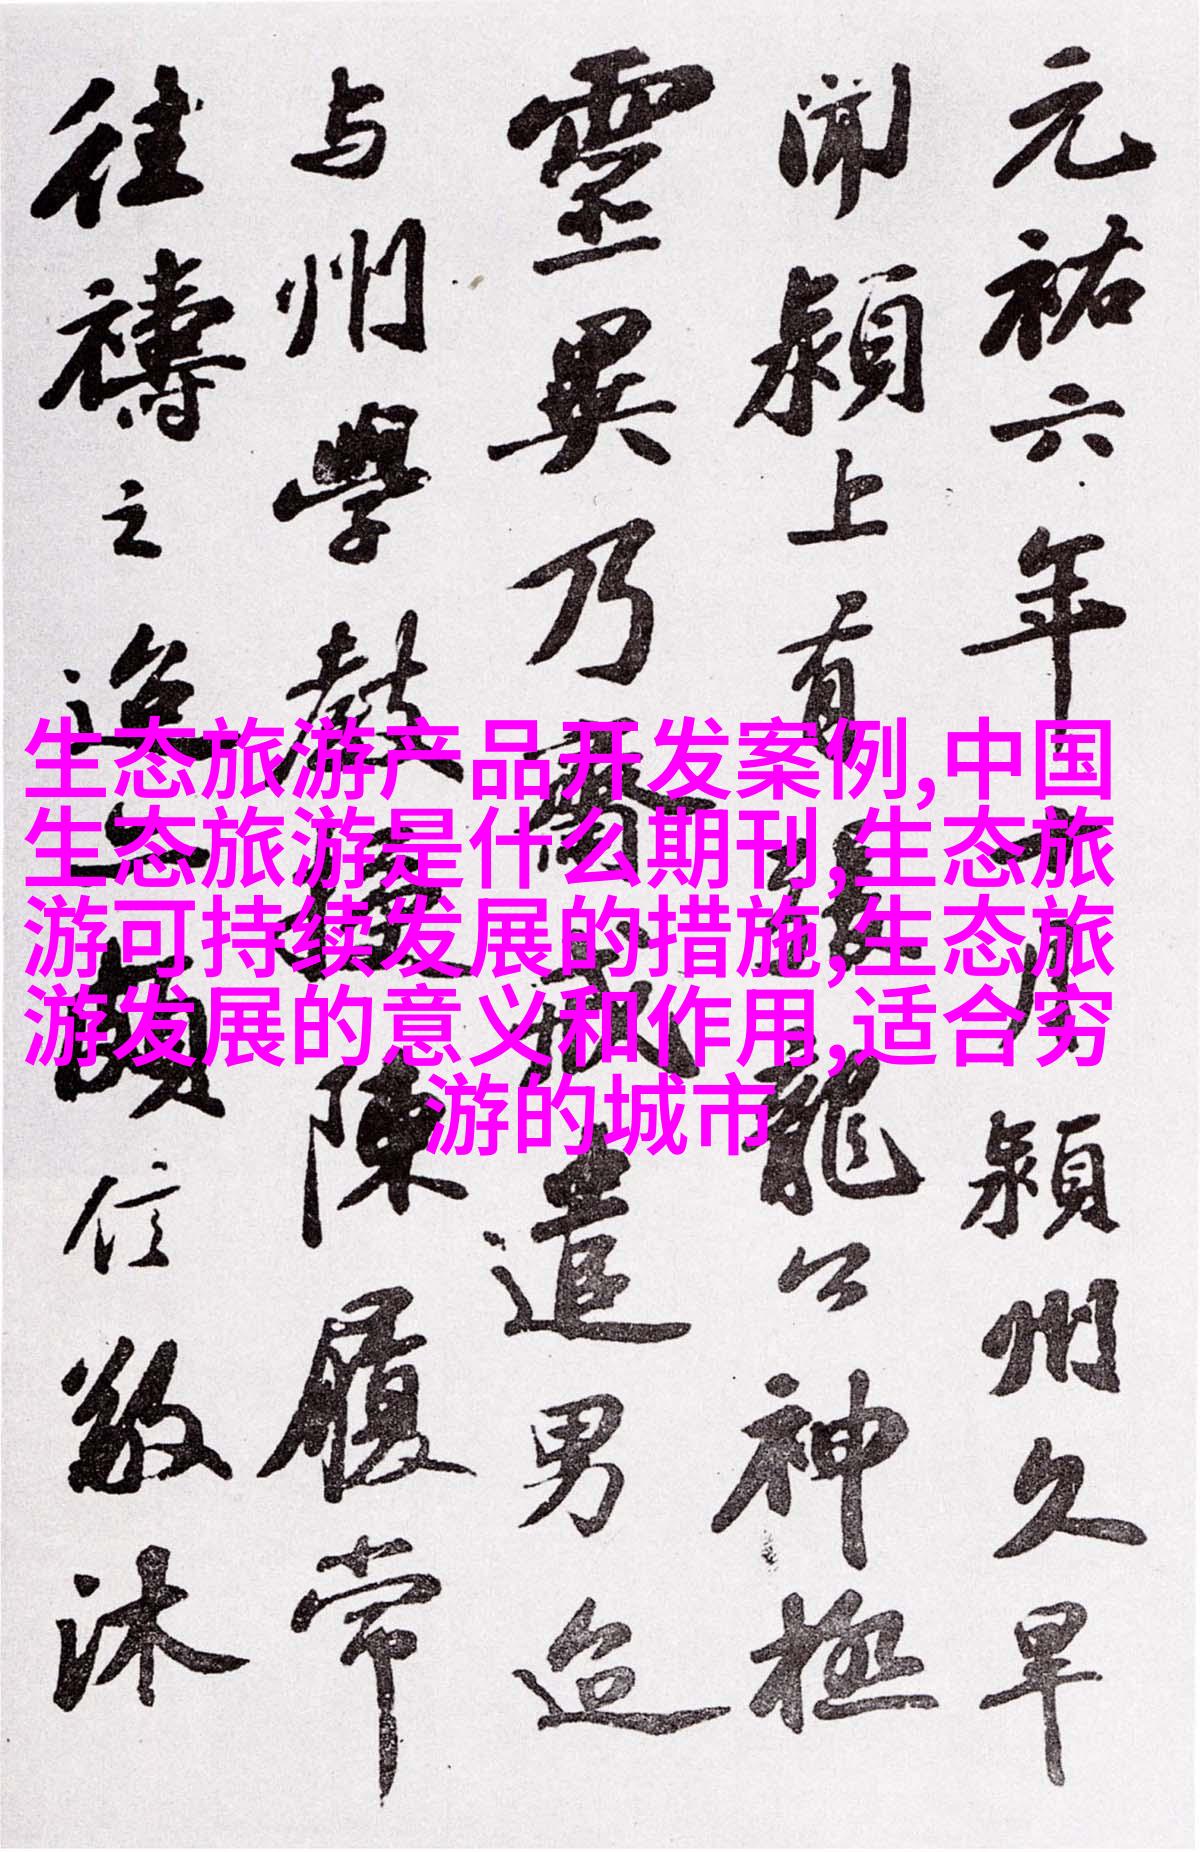 元祐六年十月潁州久旱
聞潁上有張龍公神極
靈異乃齋戒遣男迨
与州學教授陳履常
往禱之迨亦頗信敬沐
生态旅游产品开发案例,中国
生态旅游是什么期刊,生态旅
游可持续发展的措施,生态旅
游发展的意义和作用,适合穷
游的城市